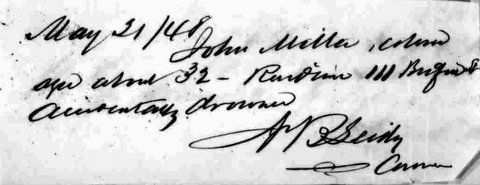 May 21/48
John Miller, colored
age about 32 - Residence 111
Accidentally drowned
Coroner